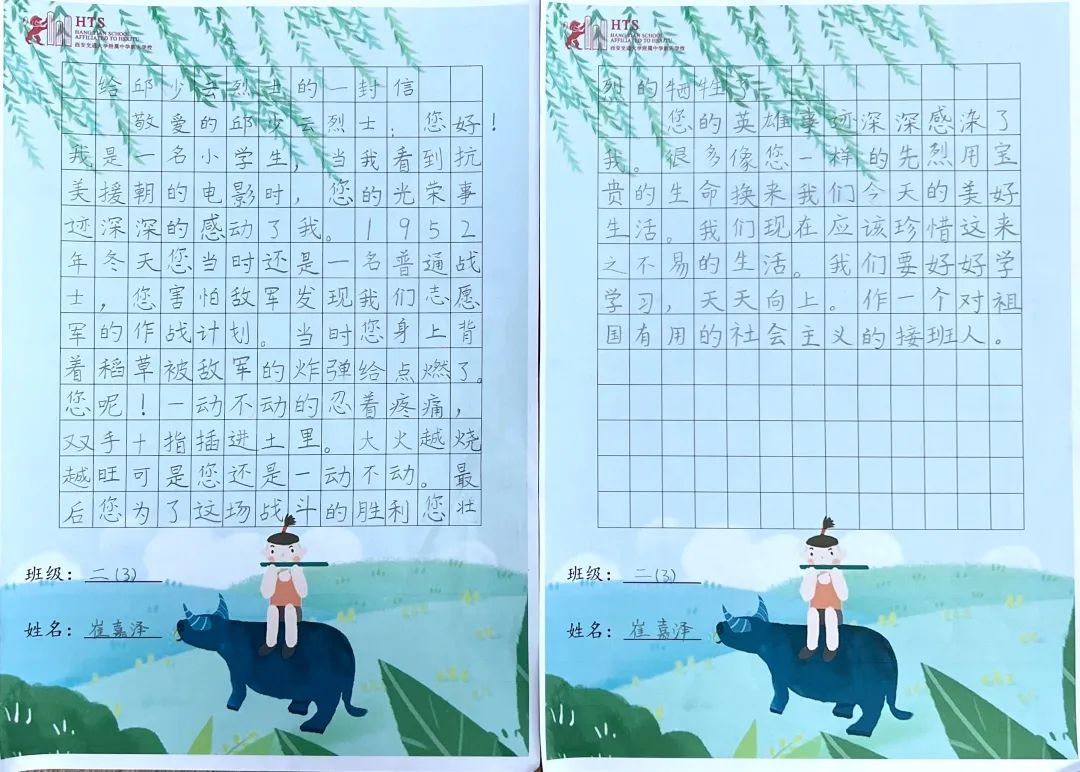 HTS
HANGTIAN SCHOOL
AFFILIATED TO HSXJTU
西安交通大学附属中学航天学校
给邱少云烈士的一封信
敬爱的邱少云烈士:您好!
我是一名小学生,当我看到抗
美援朝的电影时,您的光荣事
迹深深的感动了我。1952
年冬天您当时还是一名普通战
士,您害怕敌军发现我们志愿
军的作战计划。当时您身上背
着稻草被敌军的炸弹给点燃了。
您呢!一动不动的忍着疼痛,
双手十指插进土里。大火越烧
越旺可是您还是一动不动。最
后您为了这场战斗的胜利您壮
班级:二(3)
姓名:崔嘉泽
HTS
HANGTIAN SCHOOL
AFFILIATED TO HSXJTU
西安交通大学附属中学航天学校
烈的牺牲了。
您的英雄事迹深深感染了
我。很多像您一样的先烈用宝
贵的生命换来我们今天的美好
生活。我们现在应该珍惜这来
之不易的生活。我们要好好学
学习,天天向上。作一个对祖
国有用的社会主义的接班人。
班级:二(3)
姓名:崔嘉泽